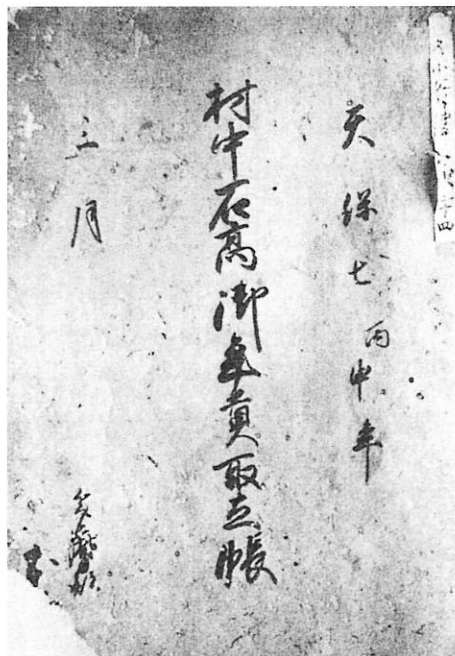 天保七丙申年
村中石高御年貢取立帳
三月